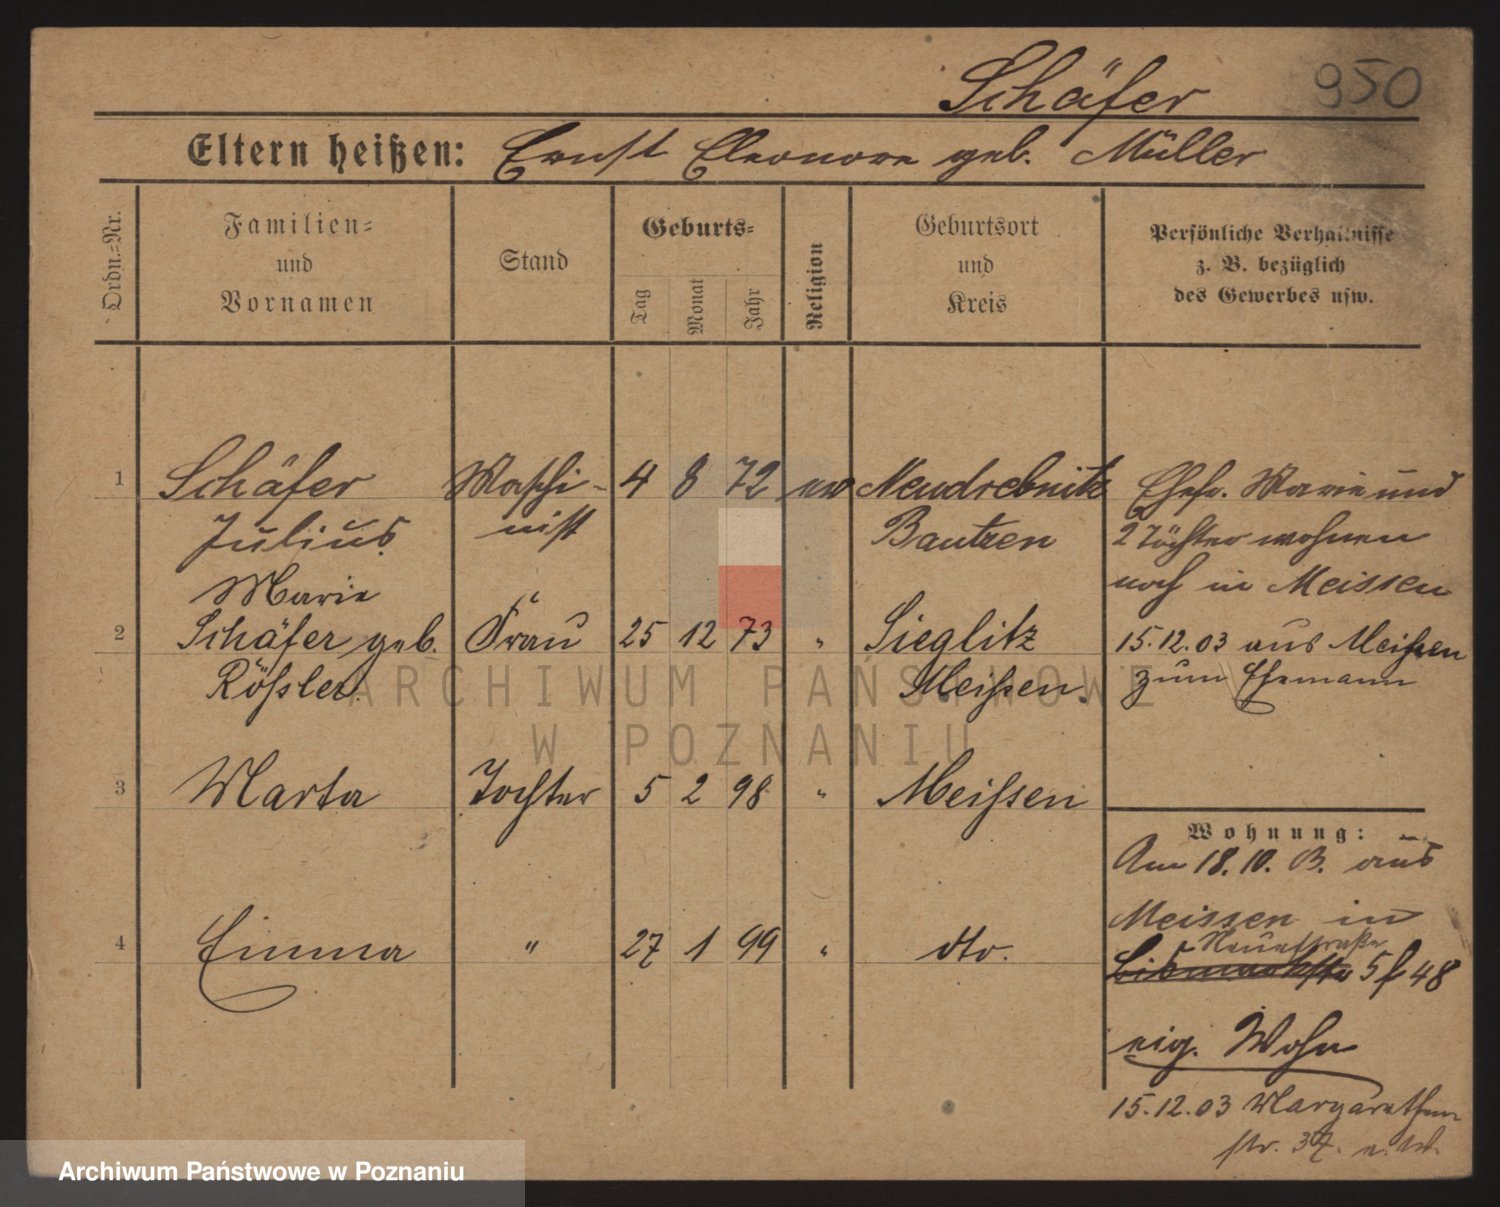 Schäfer 950
Eltern heißen: Ernst Eleonore geb. Müller
Ordn.=Nr.
Familien=
und
Vornamen
Stand
Geburts=
Tag Monat Jahr
Religion
Geburtsort
und
Kreis
Persönliche Verhältnisse
z. B. bezüglich
des Gewerbes usw.
1 Schäfer Maschi- 4 8 72 ev Neudrebnitz Ehefr. Marie und
Julius nist Bautzen 2 Töchter wohnen
noch in Meissen
Marie
2 Schäfer geb. Frau 25 12 73 " Sieglitz 15.12.03 aus Meißen
Rößler Meißen. zum Ehemann
3 Marta Tochter 5 2 98 " Meißen
Wohnung:
Am 18.10. 03. aus
Meissen in
Neuestraße
4 Emma " 27 1 99 " dto. Bismarckstr 5 f 48
eig. Wohn
15.12.03 Margarethen
str. 37. e. W.
ARCHIWUM PAŃSTWOWE
W POZNANIU
Archiwum Państwowe w Poznaniu